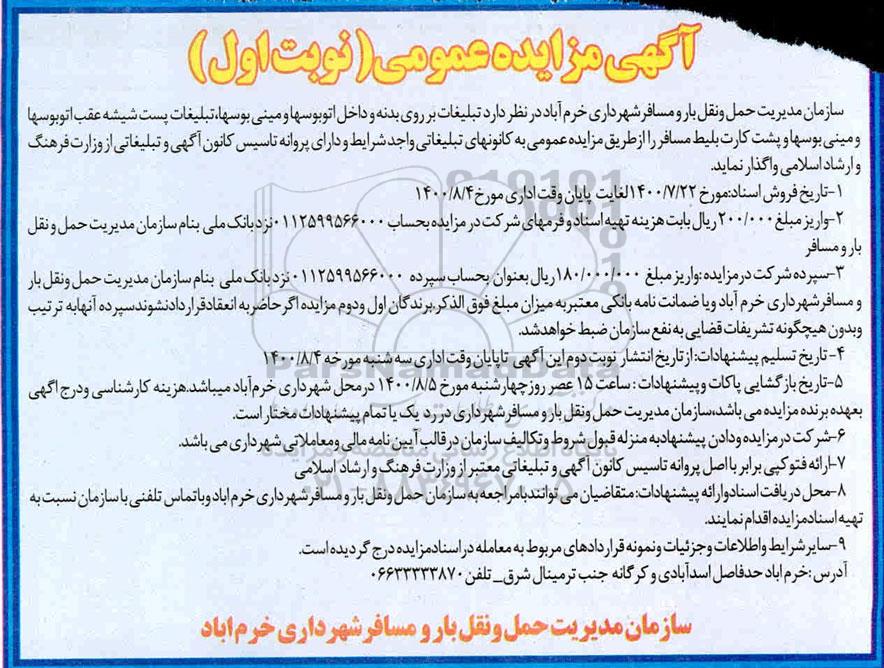 آگهی مزایده عمومی (نوبت اول)
سازمان مدیریت حمل ونقل بار و مسافر شهرداری خرم آباد در نظر دارد تبلیغات بر روی بدنه و داخل اتوبوسها و مینی بوسها، تبلیغات پست شیشه عقب اتوبوسها
و مینی بوسها و پشت کارت بلیط مسافر را از طریق مزایده عمومی به کانونهای تبلیغاتی واجد شرایط و دارای پروانه تاسیس کانون آگهی و تبلیغاتی از وزارت فرهنگ
و ارشاد اسلامی واگذار نماید.
۱-تاریخ فروش اسناد:مورخ ۱۴۰۰/۷/۲۲ لغایت پایان وقت اداری مورخ ۱۴۰۰/۸/۴
۲-واریز مبلغ ۲۰۰/۰۰۰ ریال بابت هزینه تهیه اسناد و فرمهای شرکت در مزایده بحساب ۰۱۱۲۵۹۹۵۶۶۰۰۰ نزد بانک ملی بنام سازمان مدیریت حمل و نقل
بار و مسافر
۳-سپرده شرکت در مزایده :واریز مبلغ ۱۸۰/۰۰۰/۰۰۰ ریال بعنوان بحساب سپرده ۰۱۱۲۵۹۹۵۶۶۰۰۰ نزد بانک ملی بنام سازمان مدیریت حمل ونقل بار
و مسافر شهرداری خرم آباد ویا ضمانت نامه بانکی معتبر به میزان مبلغ فوق الذکر.برندگان اول ودوم مزایده اگر حاضر به انعقاد قرارداد نشوند سپرده آنها به ترتیب
وبدون هیچگونه تشریفات قضایی به نفع سازمان ضبط خواهد شد.
۴- تاریخ تسلیم پیشنهادات: از تاریخ انتشار نوبت دوم این آگهی تا پایان وقت اداری سه شنبه مورخه ۱۴۰۰/۸/۴
۵-تاریخ بازگشایی پاکات و پیشنهادات : ساعت ۱۵ عصر روز چهارشنبه مورخ ۱۴۰۰/۸/۵ در محل شهرداری خرم آباد میباشد.هزینه کارشناسی ودرج آگهی
بعهده برنده مزایده می باشد،سازمان مدیریت حمل ونقل بار و مسافر شهرداری در رد یک یا تمام پیشنهادات مختار است.
۶-شرکت در مزایده ودادن پیشنهاد به منزله قبول شروط و تکالیف سازمان در قالب آیین نامه مالی ومعاملاتی شهرداری می باشد.
۷-ارائه فتوکپی برابر با اصل پروانه تاسیس کانون آگهی و تبلیغاتی معتبر از وزارت فرهنگ و ارشاد اسلامی
۸-محل دریافت اسناد وارائه پیشنهادات: متقاضیان می توانند با مراجعه به سازمان حمل ونقل بار و مسافر شهرداری خرم اباد ویا تماس تلفنی با سازمان نسبت به
تهیه اسناد مزایده اقدام نمایند.
۹-سایر شرایط واطلاعات وجزئیات ونمونه قراردادهای مربوط به معامله در اسناد مزایده درج گردیده است.
آدرس :خرم اباد حدفاصل اسدآبادی و کرگانه جنب ترمینال شرق_تلفن ۰۶۶۳۳۳۳۳۸۷۰
سازمان مدیریت حمل و نقل بار و مسافر شهرداری خرم اباد